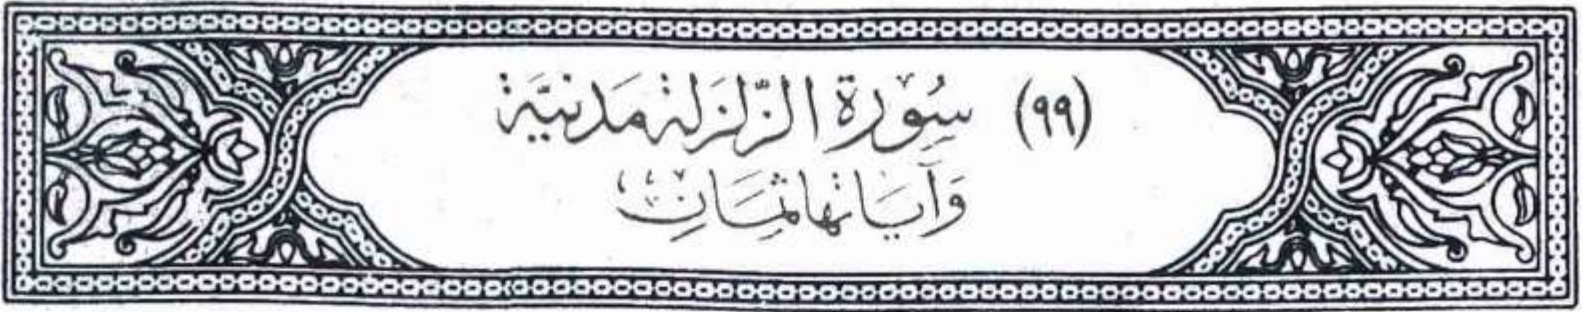 (٩٩) سُورَة الزّلزَلة مَدَنيَّة
وَآيَاتهَا ثمَانِ